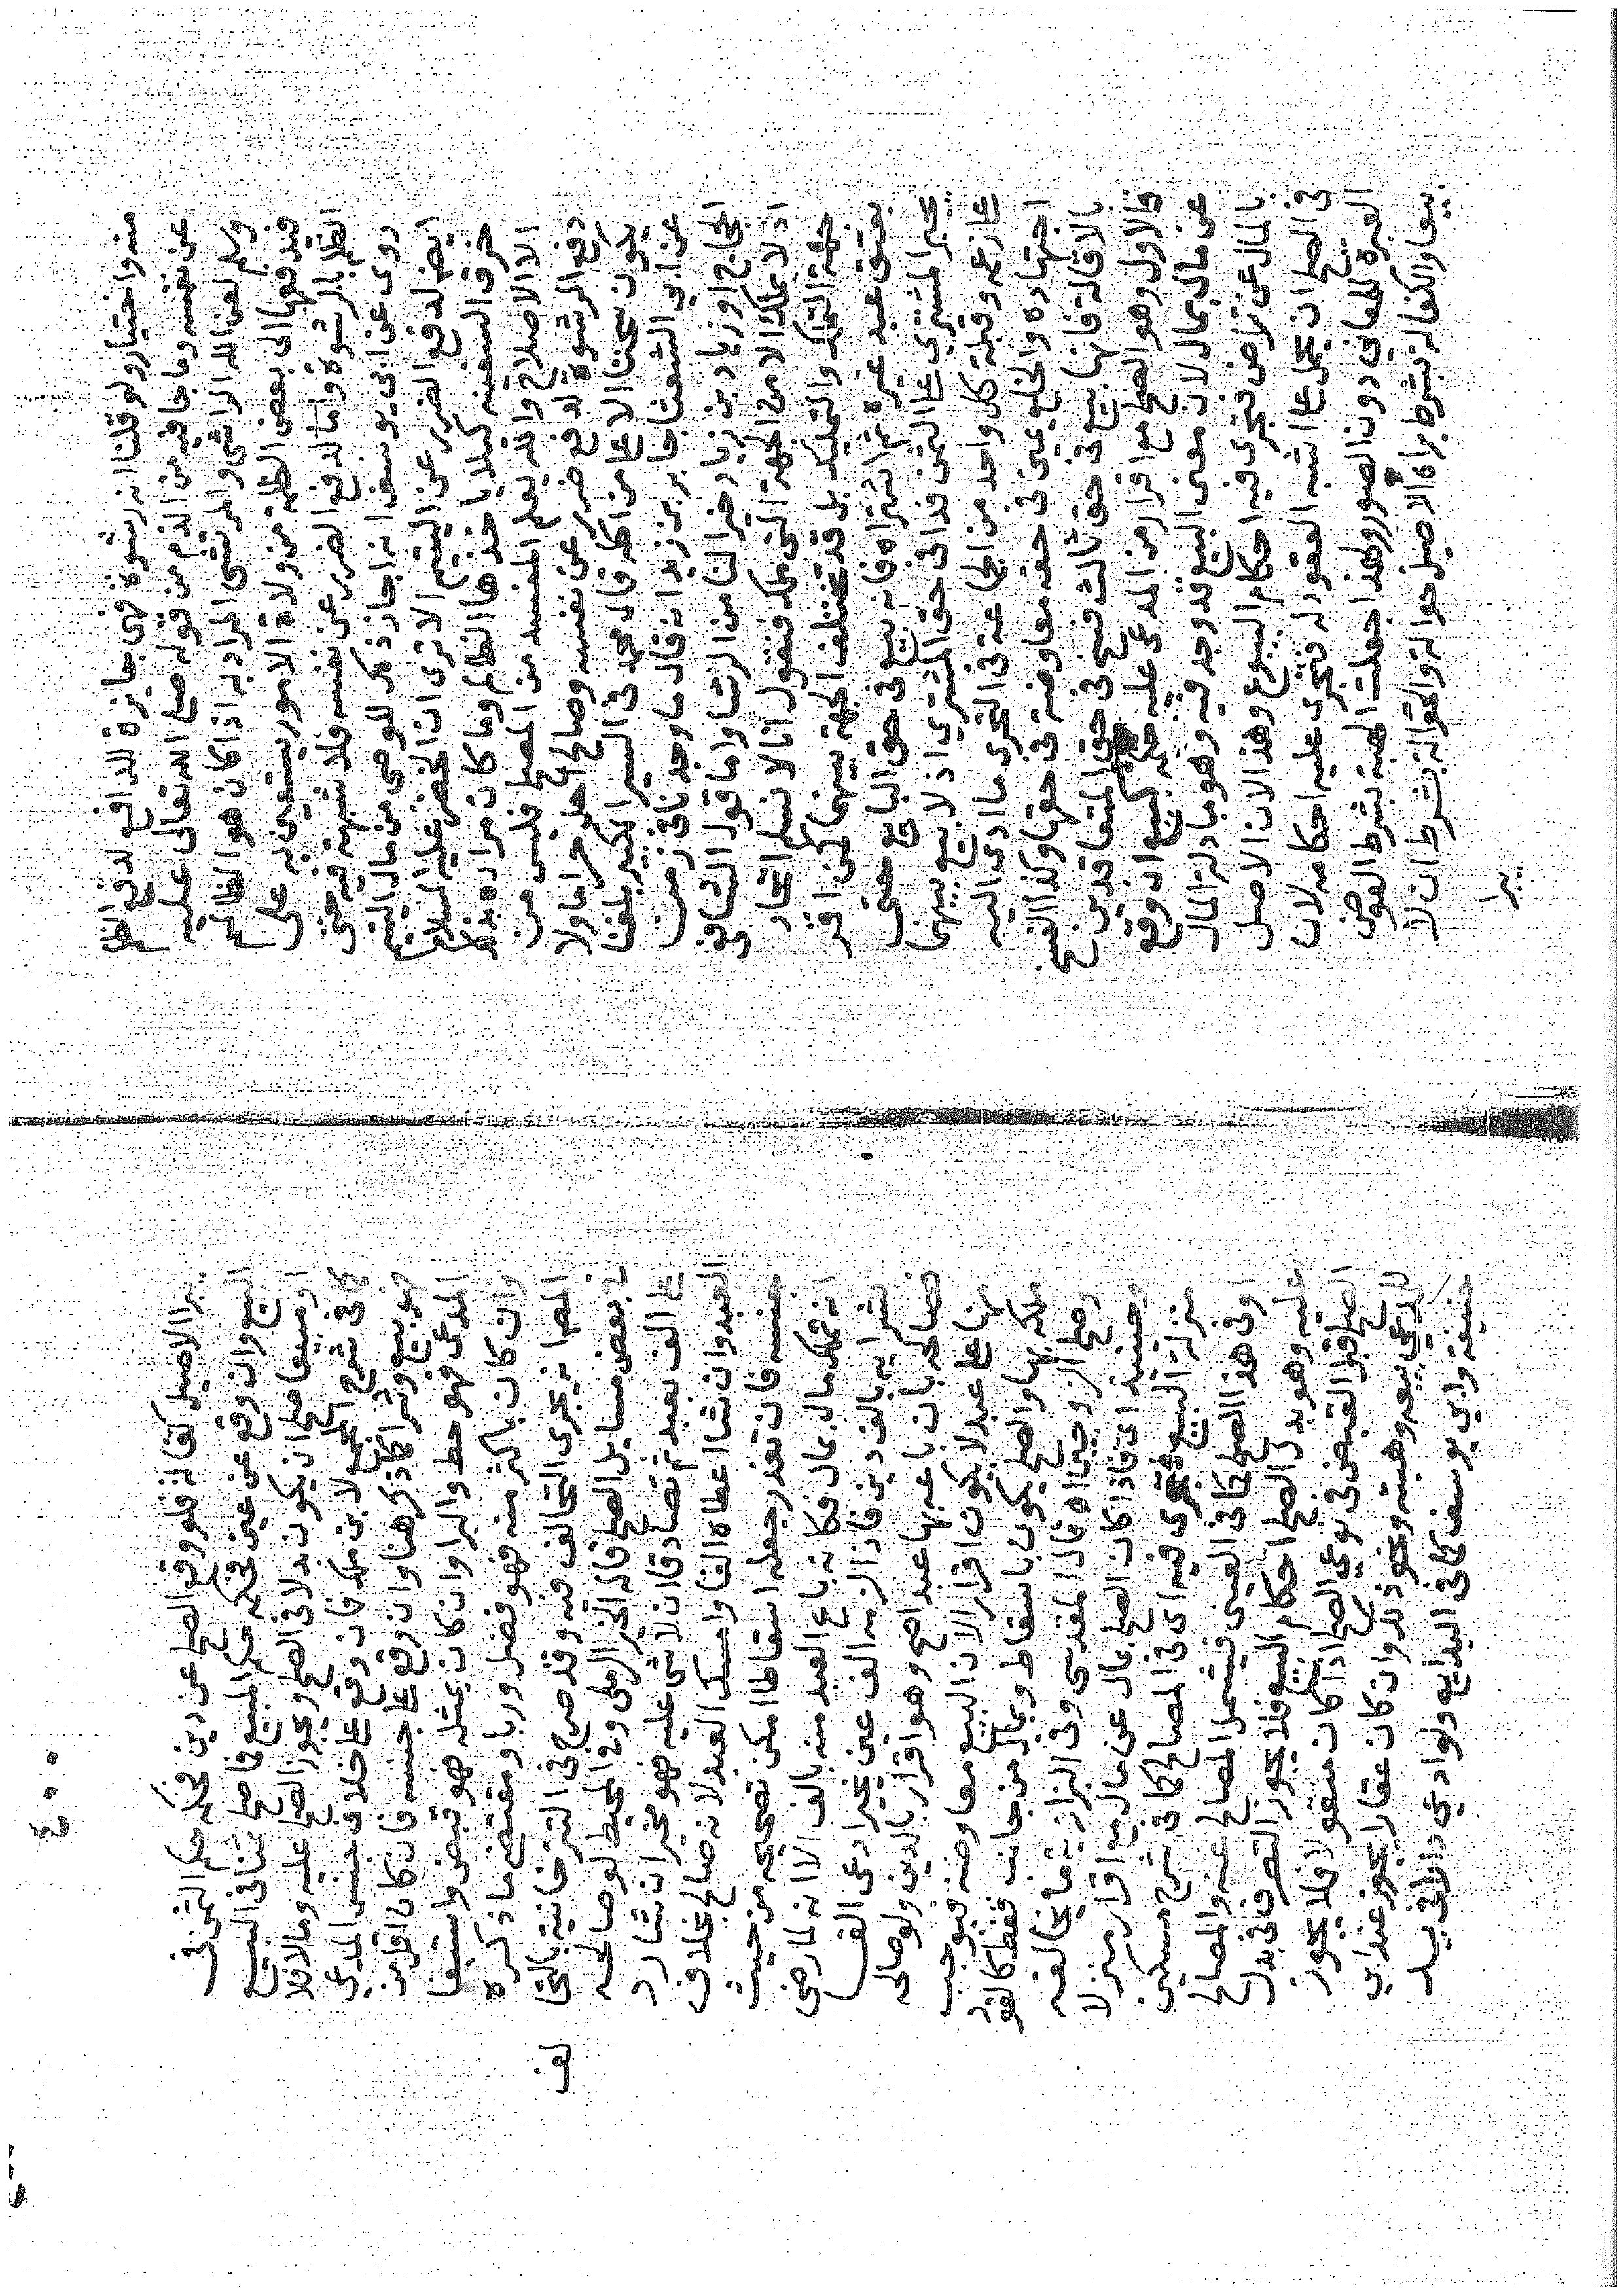 منه واختيار ولو قلنا انه رشوة فهي جايزة للدافع لدفع الظلم
عن نفسه وما جا فيه من الذم من قوله صلى الله تعالى عليه
وسلم لعن الله الراشي والمرتشي المراد به اذا كان هو الظالم
فيدفعها الى بعض الظلمة من ولاة الامور يستعين به على
الظلم بالرشوة واما لدفع الضرر عن نفسه فلا شبهة فيه حتى
روى عن ابي يوسف انه اجاز ذلك للوصي من مال اليتيم
ايضا لدفع الضرر عن اليتيم الا ترى ان الخضر عليه السلام
خرق السفينه كيلا ياخذها الظالم وما كان مراده بذلك
الا الاصلاح والله يعلم المفسد من المصلح فليس من
دفع الرشوة لدفع ضرر عن نفسه وصالح احل حراما ولا
يكون سحتا الا على من اكله قال محمد في السير الكبير بلغنا
عن ابي الشعثا جابر بن زيد انه قال ما وجدنا في زمن
الحجاج او زياد بن زياد خيرا لنا من الرشا واما قول الشافعي
اذ لا يملك الا من الجهة التي ملكه فنقول انا لا نسلم اتحاد
جهة التملك والتمليك بل قد تختلف الجهة بينهما كمن اقر
بعتق عبد غيره ثم اشتراه فانه بيع في حق البايع حتى
يجبر المشتري على الثمن فدا في حق المشتري اذ لا بيع بينهما
على زعمه وقبلة كل واحد من الجماعة في التحري ما ادى اليه
اجتهاده والخلع يمين في حقه معاوضة في حقها وكذا الفسخ
بالاقالة فانها بيع في حق ثالث فسخ في حق المتعاقدين
فالاول وهو الصلح مع اقرار من المدعى عليه حكمه كبيع ان وقع
عن مال بمال لان معنى البيع قد وجد فيه وهو مبادلة المال
بالمال عن تراض فتجرى فيه احكام البيوع وهذا لان الاصل
في الصلح ان يحمل على اشبه العقود له فتجرى عليه احكامه لان
العبرة للمعاني دون الصور ولهذا جعلت الهبة بشرط العوض
بيعا والكفالة بشرط براة الاصيل حوالة والحوالة بشرط ان لا
يبرا
يبرا الاصيل كفالة فلو وقع الصلح عن دين فحكمه حكم الثمن في
البيع وان وقع عن عين فحكمه حكم المبيع فما صلح ثمنا في البيع
او مبيعا صلح ان يكون بدلا في الصلح ويجوز الصلح عليه وما لا فلا
كما في شرح المجمع لابن ملك فان وقع على خلاف جنس المدعي
فهو بيع وشرا كما ذكر هنا وان وقع على جنسه فان كان اقل من
المدعى فهو حط وابرا وان كان بمثله فهو قبض واستيفا
وان كان باكثر منه فهو فضل وربا ومقتضى ما ذكره
المص انه يجرى التحالف فيه وقد صرح في التترخانية بالتحا
لف
في بعض مسايل الصلح قاله الخير الرملي وفي المحيط لو صالحه
على الف بعبد ثم تصادقا ان لا شى عليه فهو مخير ان شا رد
العبد وان شا اعطاه الفا وامسك العبد لانه صالح بخلاف
جنسه فان تعذر جعله اسقاطا امكن تصحيحه من حيث
انه تملك مال بمال فكانه باع العبد منه بالف الا انه لما رضى
بشرايه بالف دين فاذا لزمه الف عين تخير ادعى الفـ
فصالحه بان باعه بها عبدا صح وهو اقرار بالدين ولو صالحه
منها على عبد لا يكون اقرارا لان البيع معاوضة فيوجب
ملكه بها والصلح يكون باسقاط وبمال من جانب فقط كالخلع
وصلح الزوجين اه قال المقدسي وفي البزازية ما يخالفه
وحينيذ اى فاذا كان الصلح بمال عن مال مع اقرار منزلا
منزلة البيع فتجرى فيه اى في المصالح كما في شرح مسكين
او في هذا الصلح كما في العيني فيشمل المصالح عنه والمصالح
عليه وهو بدل الصلح احكام البيع فلا يجوز التصرف في بدل
الصلح قبل القبض في نوعي الصلح اذا كان منقولا فلا يجوز
للمدعي بيعه وهبته ونحو ذلك وان كان عقارا يجوز عند ابي
حنيفة وابي يوسف كما في البدايع ولو ادعي دارا في يد